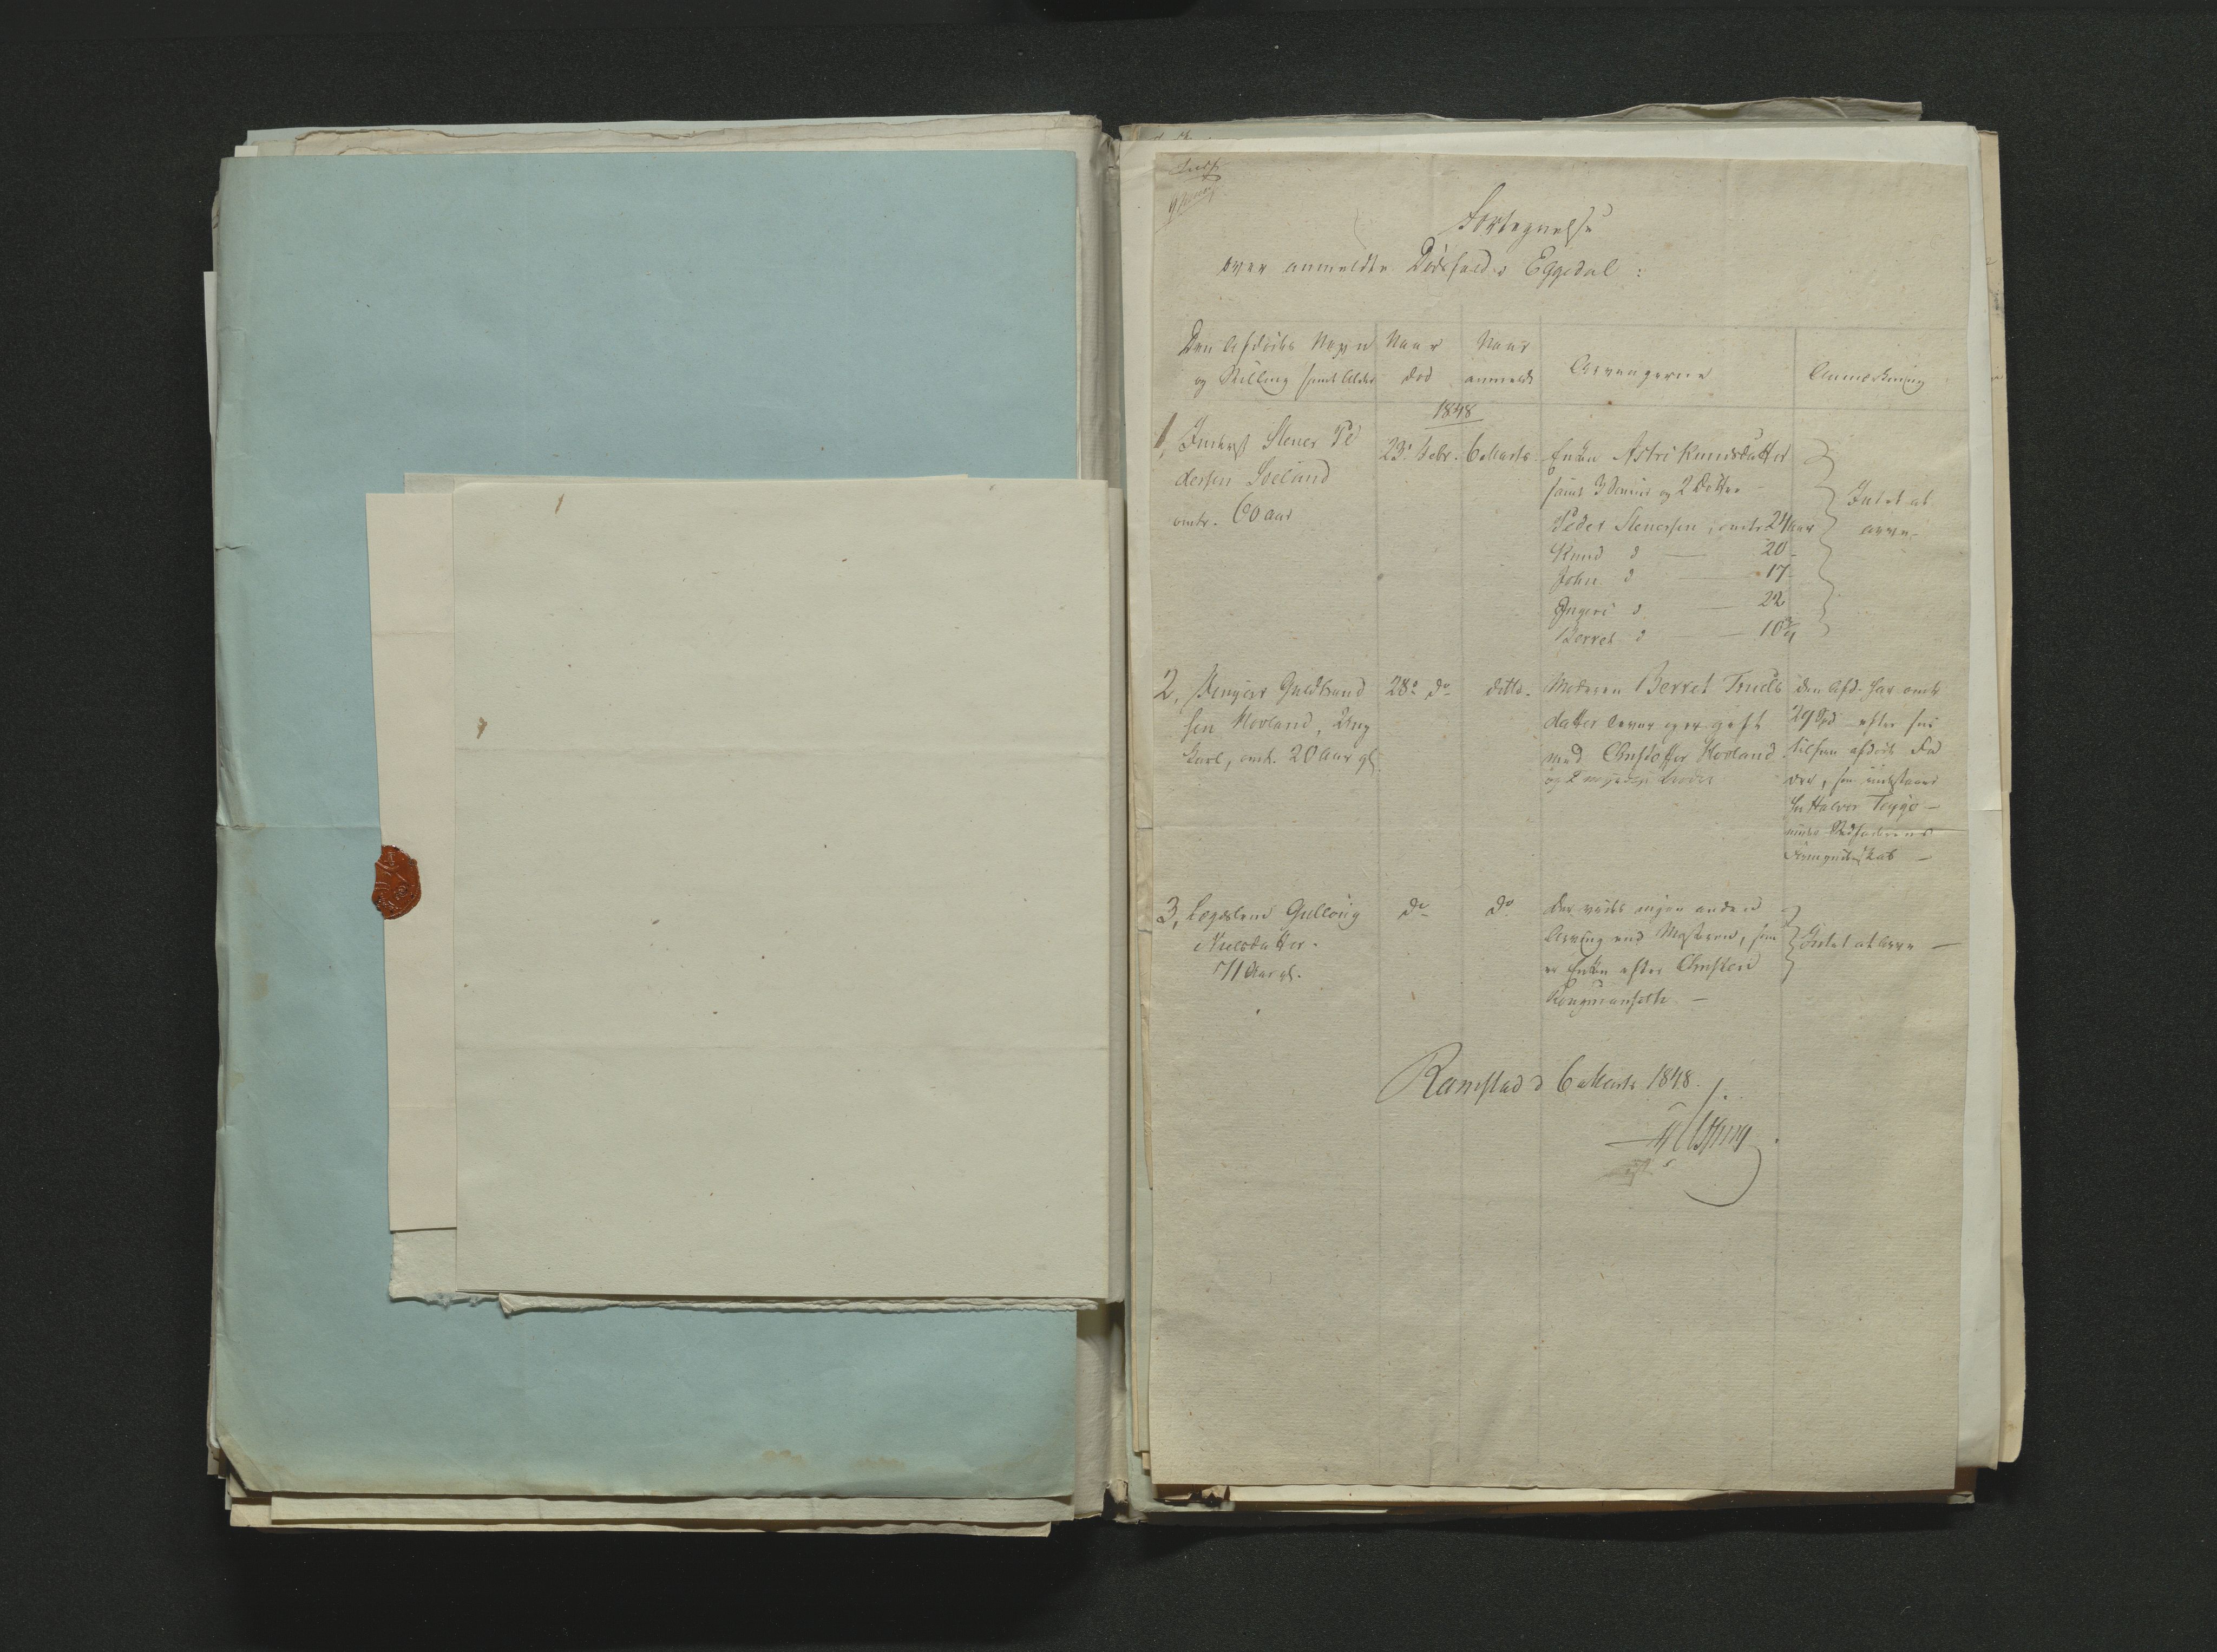 Fortegnelse
over anmeldte Dødsfald i Eggedal:
Den Afdødes Navn
og Stilling samt Alder
Naar
død
Naar
anmeldt
Arvingerne
Anmærkning
1848
1, Inderst Stener Pe
dersen Soeland
omtr. 60 aar
23de Febr.
6 Marts
Enken Astri Knudsdatter
samt 3 Sønner og 2 Døttre
Peder Stenersen, omtr 24 aar
Knud d — 20 -
John d — 17 -
Ingeri d — 22
Berret d — 10
Intet at
arve.
2, Guldbrand
sen Hovland, Ung
karl, omtr. 20 Aar gl.
28de do
ditto.
Moderen Berret Truls
datter lever og er gift
med Christoffer Hovland
og
den Afd. har omtr
29 Spd efter sin
afdøde Fa
der, som indestaaer
hos Halvor Teyge —
3, Lægdslem Gullaug
Nielsdatter.
71 Aar gl.
do
do
der vides ingen anden
Arving end Mosteren, som
er Enke efter Christen
Intet at arve —
Ramstad d 6 Marts 1848.